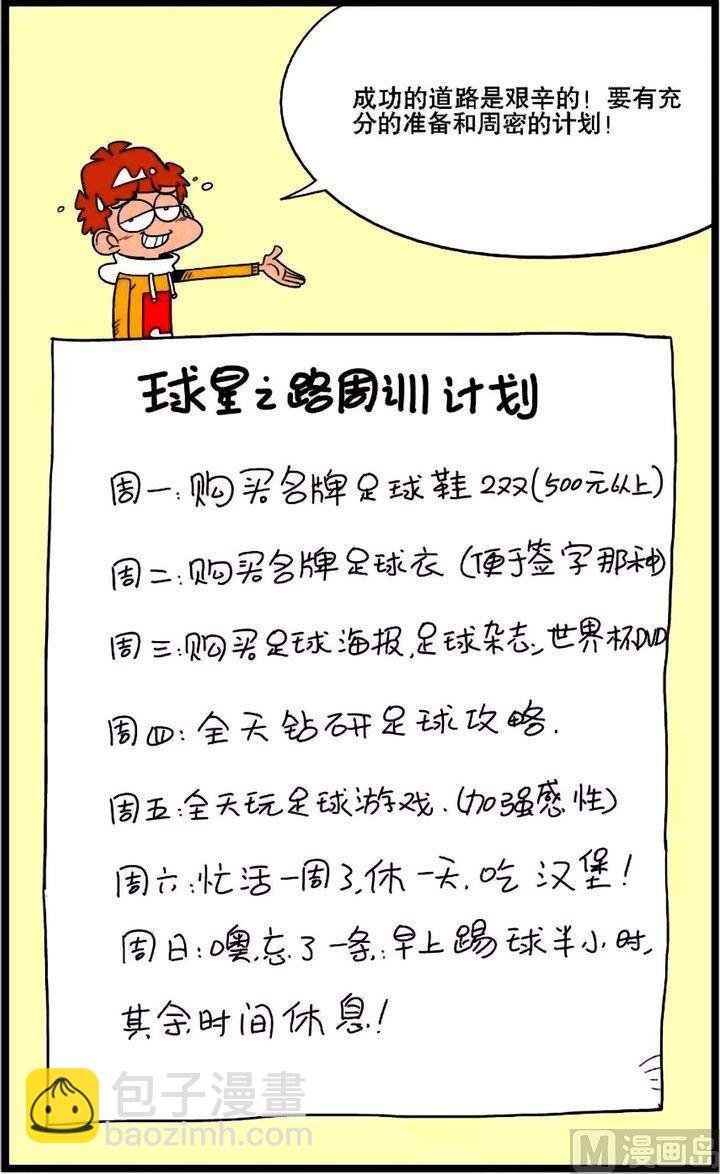 成功的道路是艰辛的！要有充
分的准备和周密的计划！
球星之路周训计划
周一：购买名牌足球鞋2双(500元以上)
周二：购买名牌足球衣(便于签字那种)
周三：购买足球海报,足球杂志,世界杯DVD
周四：全天钻研足球攻略.
周五：全天玩足球游戏.(加强感性)
周六：忙活一周了,休一天.吃汉堡!
周日：噢,忘了一条,:早上踢球半小时,
其余时间休息!
包子漫畫
baozimh.com
M漫画岛